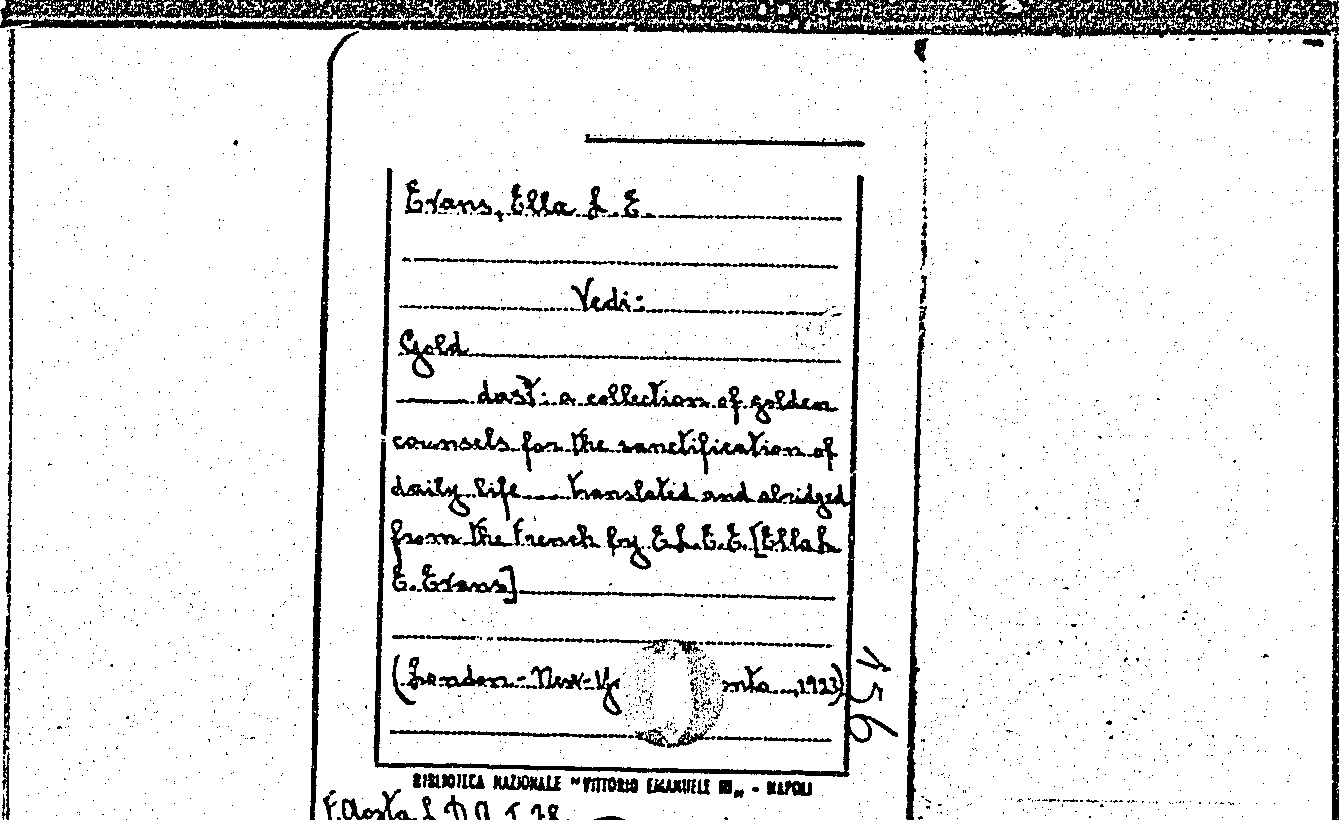 Evans, Ella L. E.
Vedi:
Gold
dast: a collection of golden
counsels for the sanctification of
daily life translated and abridged
from the french by E.L.E.E. [Ella L.
E. Evans]
(London - New-Yo onto ..., 1923)
156
BIBLIOTECA NAZIONALE "VITTORIO EMANUELE III" - NAPOLI
F. Aosta